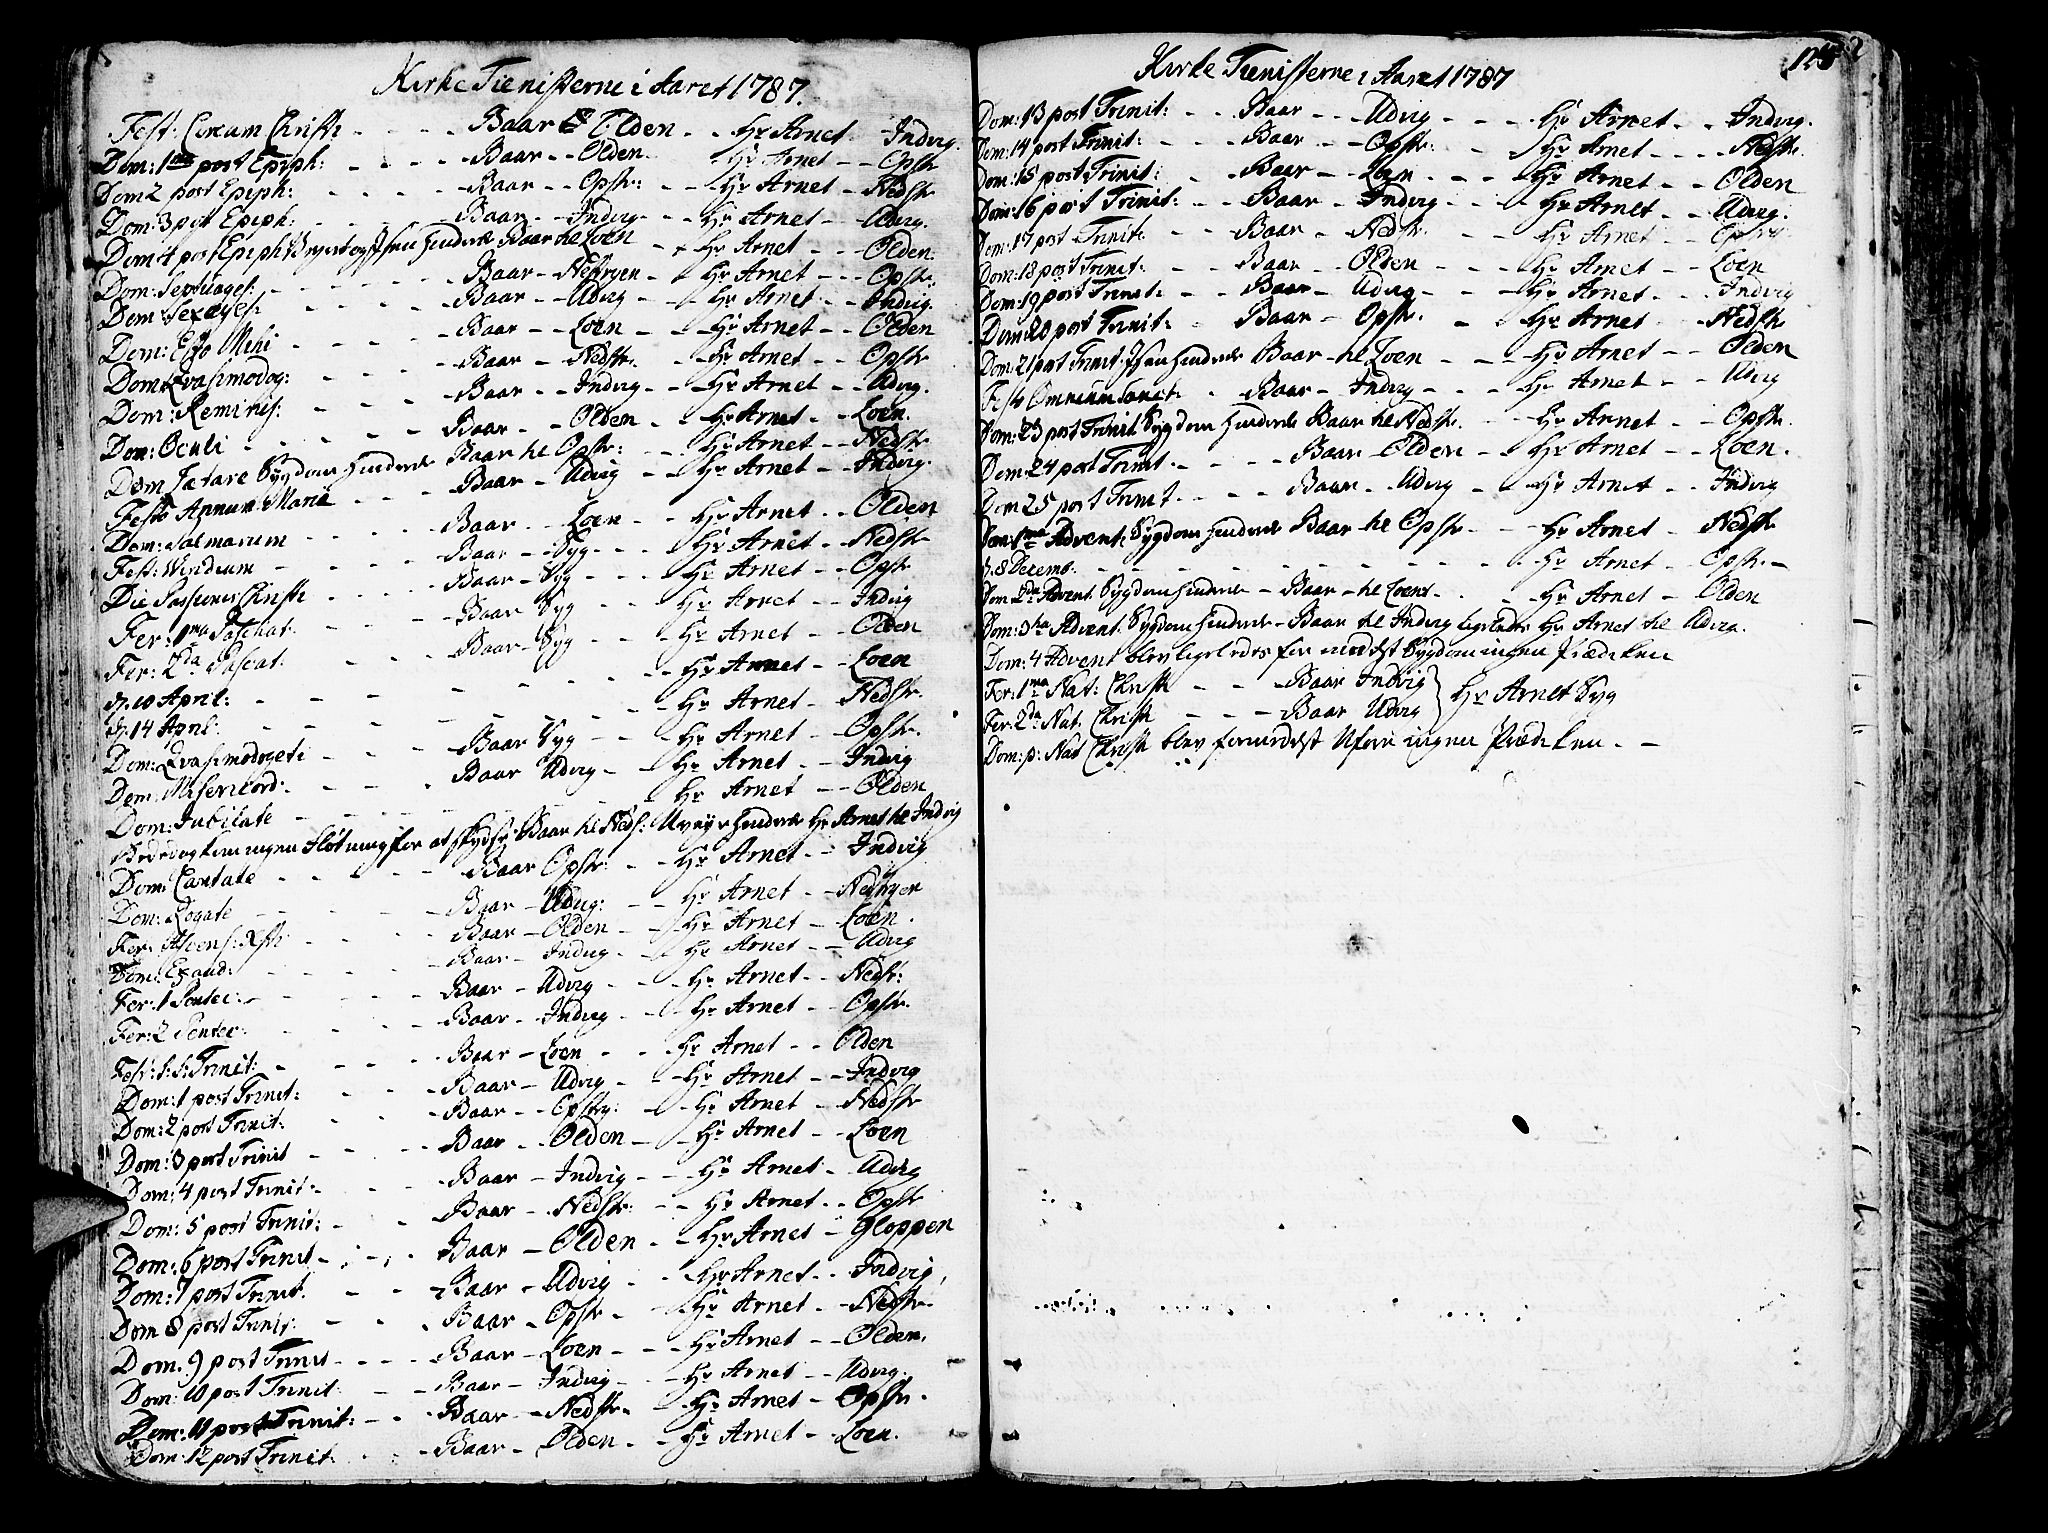 Kirke Tienisterne i Aaret 1787.
Fest: Circum Christi - - - - Baar Olden - - Hr Arnet - Indvig.
Dom: 1ma post Epiph: - - - - Baar - - Olden - - Hr Arnet - - Opstr
Dom 2 post Epiph: - - - - Baar - - Opstr: - - Hr Arnet - - Nedstr
Dom: 3 post Epiph: - - - - Baar - - Indvig - - Hr Arnet - - Udvig.
Dom 4 post Epiph: hindrede Baar he Loen - - Hr Arnet - - Olden.
Dom: Septuages: - - - - Baar - Nestryen - Hr Arnet - - Opstr:
Dom Sexages: - - - - Baar - - Udvig - - Hr Arnet - - Indvig.
Dom: Esto Mihi - - - - Baar - - Loen - - Hr Arnet - - Olden
Dom Qvasimodog: - - - - Baar - - Nedstr. - - Hr Arnet - - Opstr
Dom: Reminis: - - - - Baar - - Indvig - - Hr Arnet - - Udvig.
Dom: Oculi - - - - Baar - - Olden - - Hr Arnet - - Loen.
Dom Lætare Sygdom hindrede Baar he Opstr: - - Hr Arnet - - Nedstr
Festo Annun: Mariæ - - - Baar - - Udvig - - Hr Arnet - - Indvig.
Dom: Palmarum - - - - Baar - - Loen - - Hr Arnet - - Olden
Fest: Viridium - - - - Baar - - Syg - - - Hr Arnet - - Nedstr
Die Passionis Christi - - - - Baar - Syg - - - Hr Arnet - - Opstr
Fer: 1ma Paschat. - - - - Baar Syg - - - Hr Arnet - - Indvig
Fer: 2da Pascat: - - - Baar - Syg - - Hr Arnet - - Olden
d. 10 April: - - - - - - Hr Arnet - - Loen
d. 14 April - - - - - - Hr Arnet - - Nedstr.
Dom: Qvasimodogeti - - - Baar Syg - - Hr Arnet - - Opstr.
Dom. Misericord: - - - - Baar Udvig - - Hr Arnet - - Indvig
Dom: Jubilate - - - - - Hr Arnet - - Olden
Bededag kom ingen for at skydse Baar he Neds: Uveyr hindrede Hr Arnet he Indvig
Dom: Cantate - - - - Baar Opstr: - - Hr Arnet - - Indvig
Dom: Rogate - - - - Baar - Udvig: - - Hr Arnet - - Nedstryen
Fer: Ascens: Xsti - - - - Baar - Olden - - Hr Arnet - - Loen.
Dom: Exaud: - - - - Baar - Indvig - - Hr Arnet - - Udvig
Fer: 1 Pentec: - - - - Baar - Udvig - - Hr Arnet - - Nedstr:
Fer: 2 Pentec: - - - - Baar - Indvig - - Hr Arnet - - Opstr.
Fest: S: S: Trinit: - - - - Baar - Loen - - Hr Arnet - - Olden
Dom: 1 post Trinit: - - - Baar - Udvig - - Hr Arnet - - Indvig
Dom: 2 post Trinit: - - - Baar - Opstry: - - Hr Arnet - - Nedstr
Dom: 3 post Trinit - - - Baar - Olden - - Hr Arnet - - Loen
Dom: 4 post Trinit: - - - Baar - Indvig - - Hr Arnet - - Udvig
Dom: 5 post Trinit: - - - Baar - Nedstr: - - Hr Arnet - - Opstr
Dom: 6 post Trinit - - - Baar - Olden - - Hr Arnet - Gloppen
Dom: 7 post Trinit. - - - Baar - Udvig - - Hr Arnet - - Indvig,
Dom 8 post Trinit: - - - Baar - Opstr - - Hr Arnet - - Nedstr.
Dom. 9 post Trinit - - - Baar - Loen - - Hr Arnet - - Olden.
Dom: 10 post Trinit. - - Baar - Indvig - - Hr Arnet - - Udvig.
Dom: 11 post Trinit: - - Baar - Nedstr. - Hr Arnet - - Opstr.
Dom: 12 post Trinit. - - - Baar - Olden - - Hr Arnet - - Loen.
Kirke Tienisterne i Aaret 1787
Dom: 13 post Trinit: - - Baar - - Udvig - - - Hr Arnet - - Indvig.
Dom: 14 post Trinit: - - Baar - - Opstr. - - Hr Arnet - - - Nedstr.
Dom: 15 post Trinit: - Baar - - Loen - - - Hr Arnet - - Olden
Dom: 16 post Trinit: - - Baar - Indvig - - - Hr Arnet - - Udvig.
Dom: 17 post Trinit: - - Baar - Nedstr. - - Hr Arnet - - Opstr.
Dom: 18 post Trinit: - - Baar - Olden - - - Hr Arnet - - Loen
Dom: 19 post Trinit: - - Baar - Udvig - - - Hr Arnet - - - Indvig
Dom: 20 post Trinit: - Baar - - Opstr. - Hr Arnet - - - Nedstr
Dom: 21 post Trinit. hindrede Baar - he Loen - - Hr Arnet - - Olden
Fest: Omnium Sanct: - Baar - Indvig - - - Hr Arnet - - Udvig
Dom: 23 post Trinit. Sygdom hindrede Baar he Nedstr. - - Hr Arnet - - Opstr.
Dom: 24 post Trinit. - - - - Baar - Olden - - Hr Arnet - - Loen.
Dom 25 post Trinit. - - - - Baar - Udvig - - Hr Arnet - - Indvig
Dom: 1ma Advent: Sygdom hindrede Baar he Opstr - - - Hr Arnet - Nedstr
d. 8 Decemb. - - - - - - - - - - Hr Arnet - Opstr. -
Dom. 2da Advent. Sygdom hindrede - Baar - he Loen - - Hr Arnet - Olden
Dom: 3tia Advent: Sygdom hindrede - Baar he Indvig ligeledes Hr Arnet he Udvig.
Dom: 4 Advent blev ligeledes formedelst Sygdom ingen Prædiken
Fer: 1ma Nat: Christi - - - Baar Indvig
Fer: 2da Nat. Christi - - - Baar Udvig } Hr Arnet Syg
Dom: p: Nat Christi blev formedelst Uføre ingen Prædiken. -